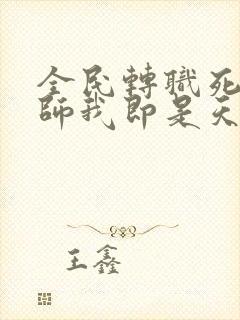 全民轉職死
師我即是天
王鑫